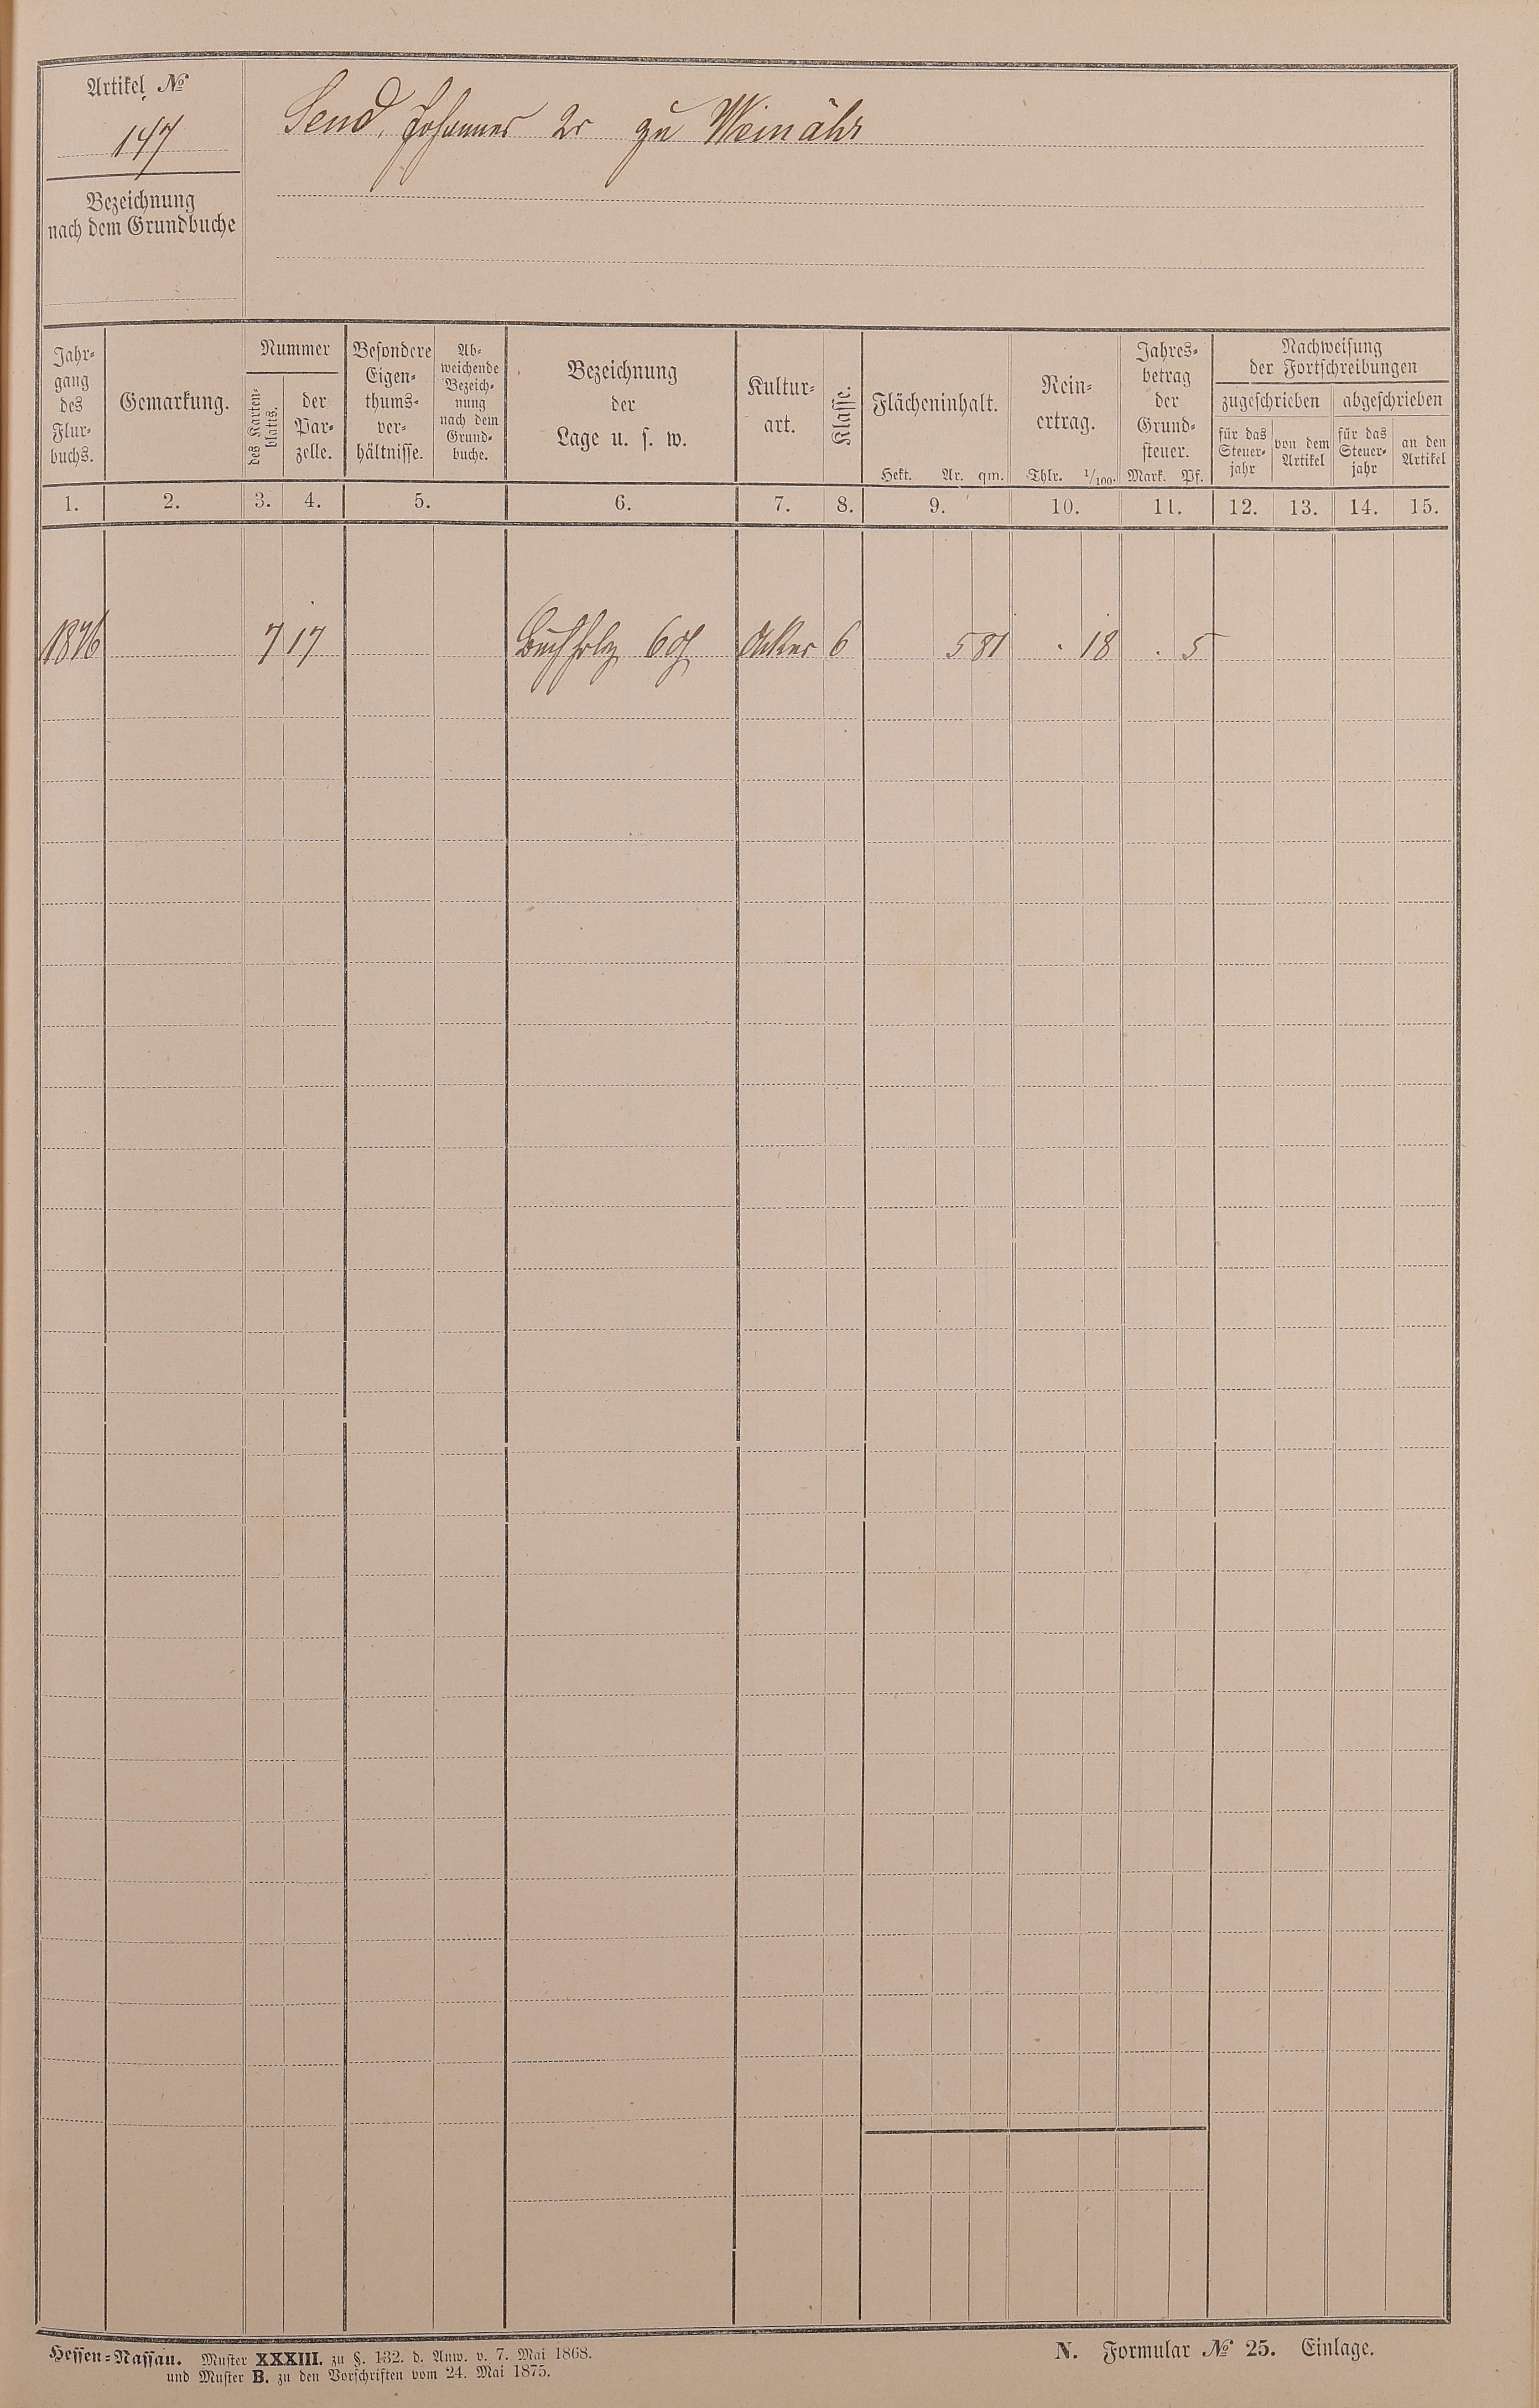 Artikel №
147
Send, Johannes 2r zu Weinähr
Bezeichnung
nach dem Grundbuche
Jahr-
gang
des
Flur-
buchs.
Gemarkung.
Nummer
des Karten-
blatts.
der
Par-
zelle.
Besondere
Eigen-
thums-
ver-
hältnisse.
Ab-
weichende
Bezeich-
nung
nach dem
Grund-
buche.
Bezeichnung
der
Lage u. s. w.
Kultur-
art.
Klasse.
Flächeninhalt.
Hekt. Ar. qm.
Rein-
ertrag.
Thlr. 1/100.
Jahres-
betrag
der
Grund-
steuer.
Mark. Pf.
Nachweisung
der Fortschreibungen
zugeschrieben abgeschrieben
für das
Steuer-
jahr
von dem
Artikel
für das
Steuer-
jahr
an den
Artikel
1. 2. 3. 4. 5. 6. 7. 8. 9. 10. 11. 12. 13. 14. 15.
1876 7 17 Buchholz 6 Acker 6 5 81 . 18 . 5
Hessen-Nassau. Muster XXXIII. zu §. 132. d. Anw. v. 7. Mai 1868.
und Muster B. zu den Vorschriften vom 24. Mai 1875.
N. Formular № 25. Einlage.